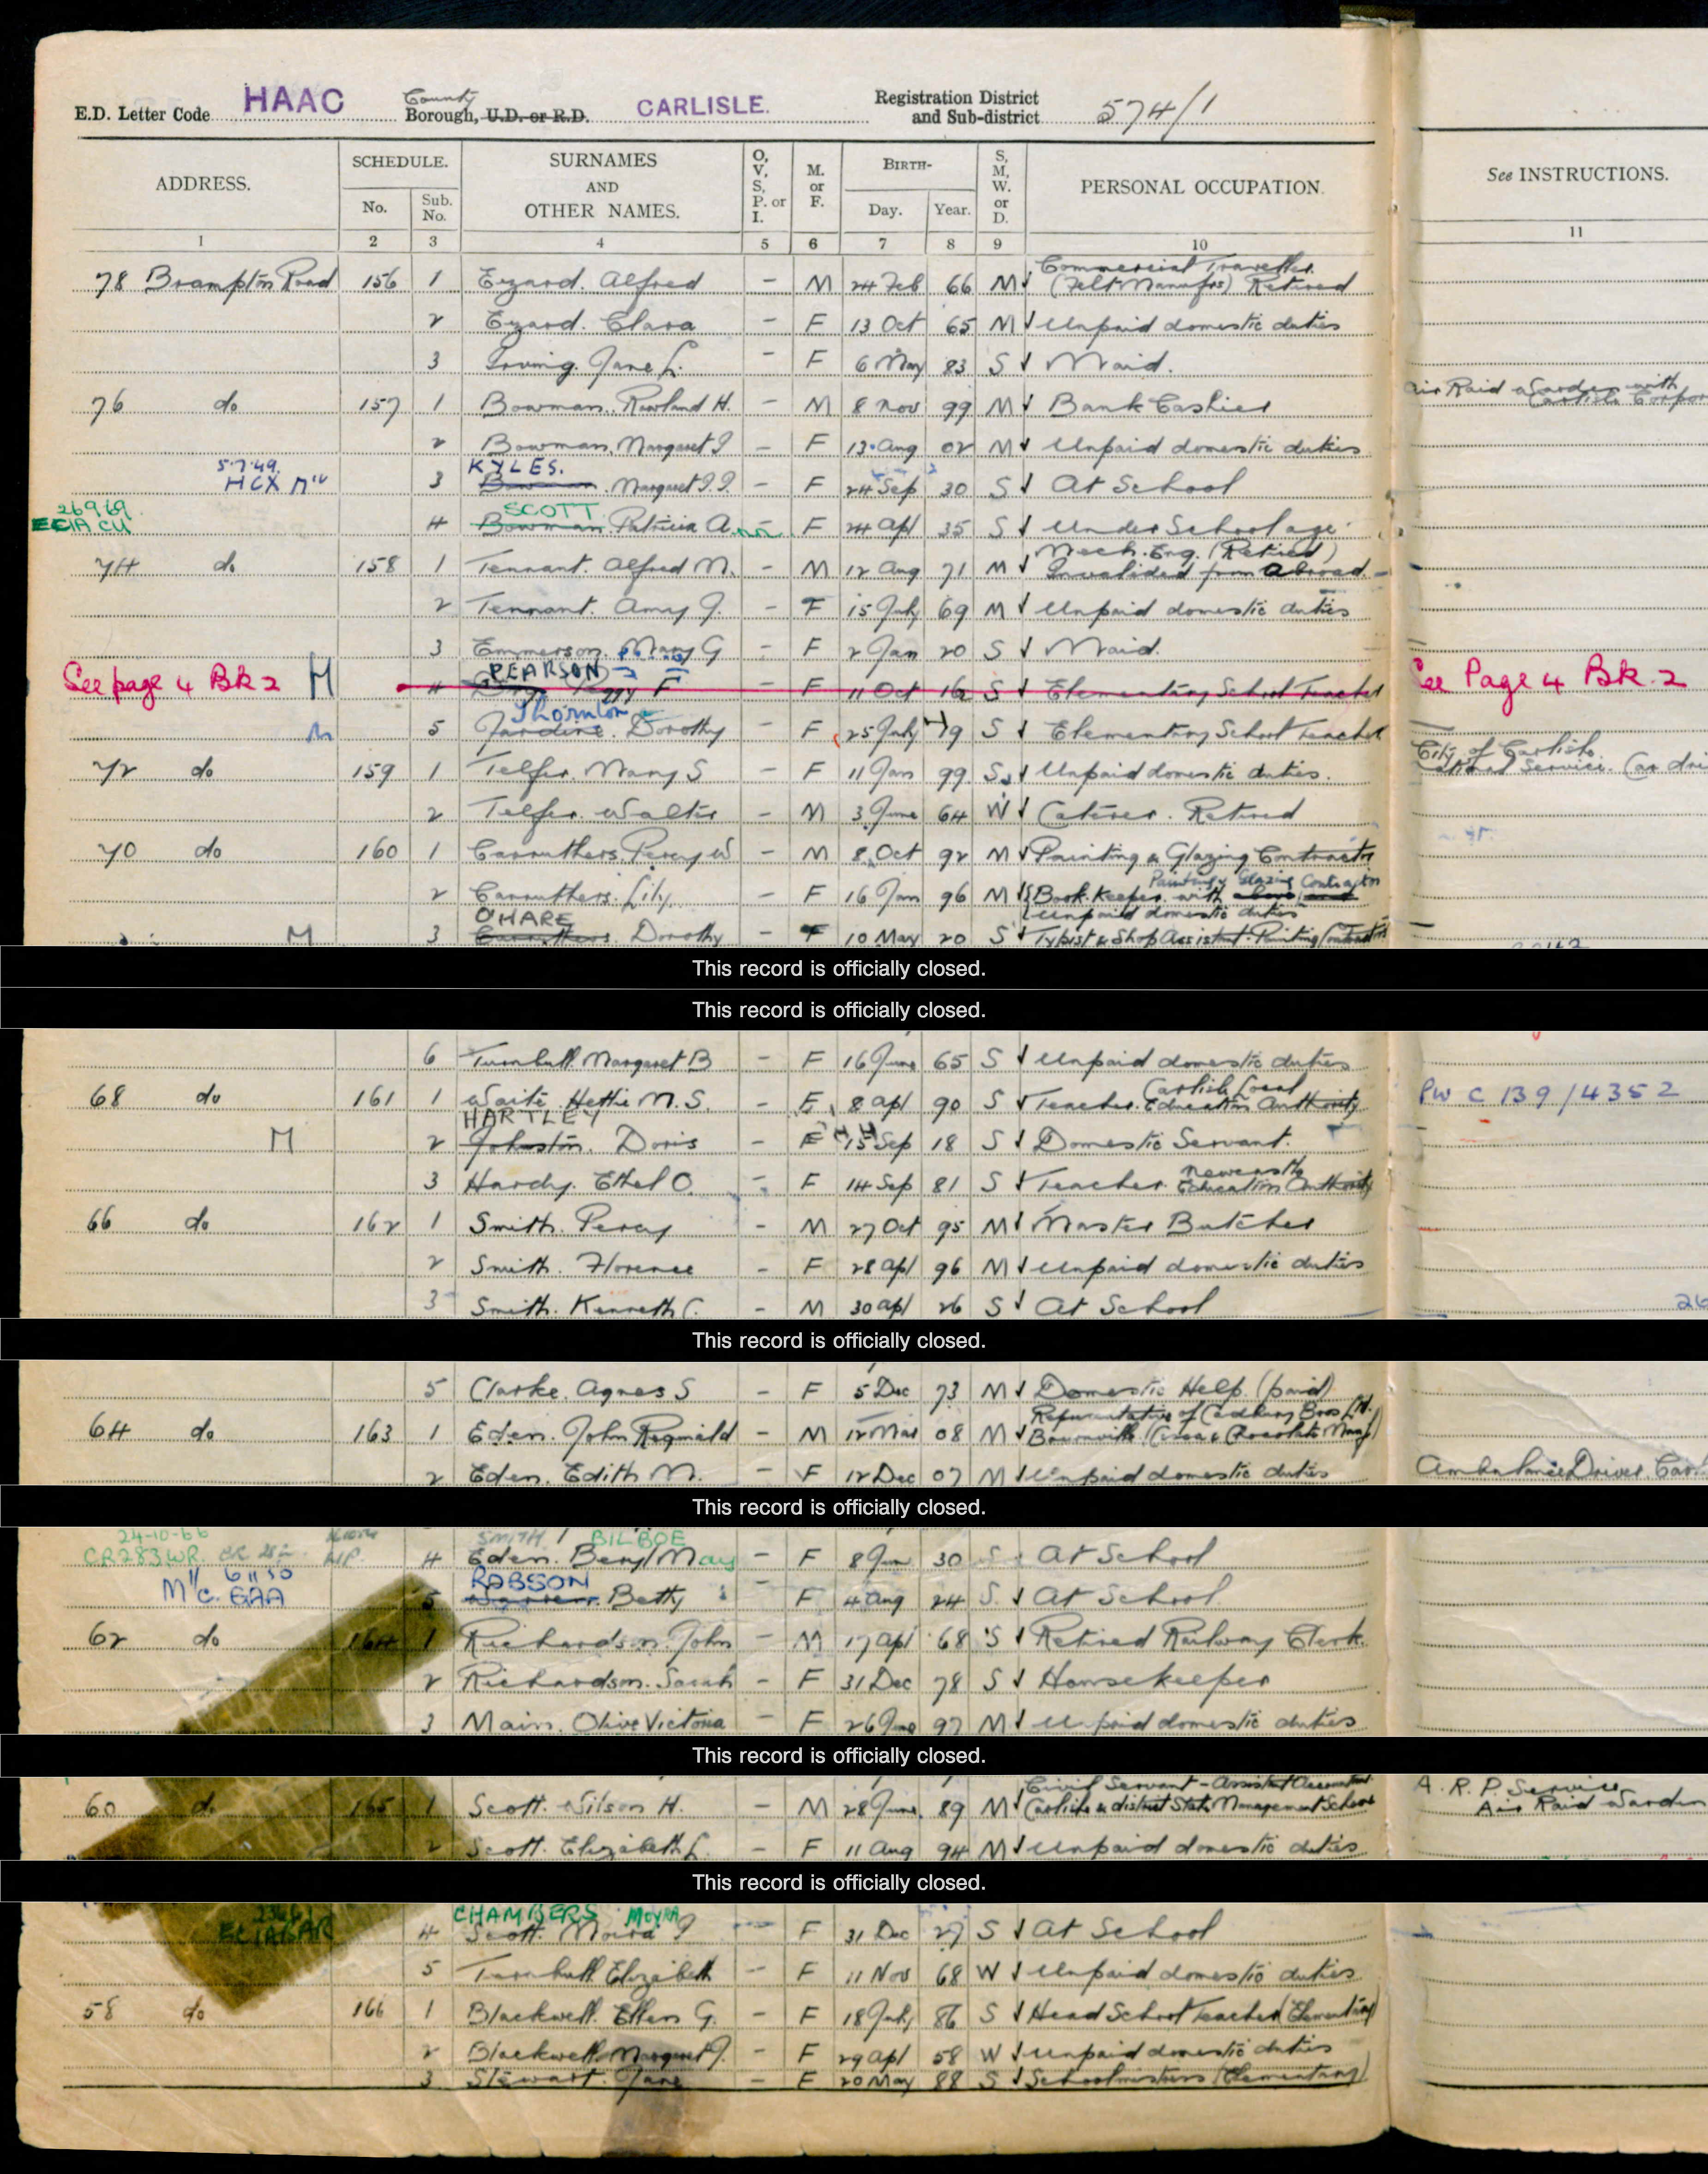 E.D. Letter Code HAAC County Borough, U.D. or R.D. CARLISLE. Registration District and Sub-district 574/1
ADDRESS. SCHEDULE. No. Sub. No. SURNAMES AND OTHER NAMES. O, V, S, P. or I. M. or F. BIRTH- Day. Year. S, M, W. or D. PERSONAL OCCUPATION. See INSTRUCTIONS.
1 2 3 4 5 6 7 8 9 10 11
78 Brampton Road 156 1 Ezard. Alfred - M 24 Feb 66 M Commercial Traveller. (Felt Manufrs) Retired
2 Ezard. Clara - F 13 Oct 65 M Unpaid domestic duties
3 Irving. Jane L. - F 6 May 83 S Maid.
76 do 157 1 Bowman. Rowland H. - M 8 Nov 99 M Bank Cashier Air Raid Warden with Carlisle Corpor
2 Bowman. Margaret I - F 13 Aug 02 M Unpaid domestic duties
5.7.49. HCX KYLES.
3 Bowman. Margaret I. I. - F 24 Sep 30 S At School
26969 ECIA CU SCOTT
4 Bowman. Patricia A F 24 Apl 35 S Under School age
74 do 158 1 Tennant. Alfred M. - M 12 Aug 71 M Mech. Eng. (Retired) Invalided from Abroad.
2 Tennant. Amy J. - F 15 July 69 M Unpaid domestic duties
3 Emmerson. Mary G - F 2 Jan 20 S Maid.
See page 4 Bk 2 M PEARSON
4 F - F 11 Oct 16 S Elementary School Teacher See Page 4 Bk. 2
Thornton
5 Jardine. Dorothy F 25 July 19 S Elementary School Teacher
72 do 159 1 Telfer. Mary S - F 11 Jan 99 S Unpaid domestic duties. City of Carlisle Service. (car dri
2 Telfer. Walter - M 3 June 64 W Caterer. Retired
70 do 160 1 Carruthers. Percy W - M 8 Oct 92 M Painting & Glazing Contractor
2 Carruthers. Lily. - F 16 Jan 96 M Book-keeper with Painting & Glazing Contractor Unpaid domestic duties
O'HARE
M 3 Carruthers. Dorothy - F 10 May 20 S Typist & Shop Assistant. Painting Contractors
This record is officially closed.
This record is officially closed.
6 Turnbull Margaret B - F 16 June 65 S Unpaid domestic duties
68 do 161 1 Waite. Hettie M. S. - F 8 Apl 90 S Teacher. Carlisle Local Education Authority PW C 139/4352
HARTLEY
M 2 Johnston. Doris - F 15 Sep 18 S Domestic Servant.
3 Hardy. Ethel O. - F 14 Sep 81 S Teacher. Newcastle Education Authority
66 do 162 1 Smith. Percy - M 27 Oct 95 M Master Butcher
2 Smith. Florence - F 28 Apl 96 M Unpaid domestic duties
3 Smith. Kenneth C. - M 30 Apl 26 S At School 26
This record is officially closed.
5 Clarke. Agnes S - F 5 Dec 73 M Domestic Help. (paid)
64 do 163 1 Eden. John Reginald - M 12 Mar 08 M Representative of Cadbury Bros Ltd. Bournville. (Cocoa & Chocolate Manf)
2 Eden. Edith M. - F 12 Dec 07 M Unpaid domestic duties Ambulance Driver. Carl
This record is officially closed.
24-10-66 SMITH / BILBOE
CR283WR 4 Eden. Beryl May - F 8 Jun 30 S At School
Mc. GAA 6 11 50 ROBSON
5 Betty F 4 Aug 24 S. At School
62 do 164 1 Richardson. John - M 17 Apl 68 S Retired Railway Clerk.
2 Richardson. Sarah - F 31 Dec 78 S Housekeeper
3 Main. Olive Victoria - F 26 June 97 M Unpaid domestic duties
This record is officially closed.
60 do 165 1 Scott. Wilson H. - M 28 June 89 M Civil Servant - Assistant Accountant. Carlisle & district State Management Scheme A. R. P. Service Air Raid Warden
2 Scott. Elizabeth L. - F 11 Aug 94 M Unpaid domestic duties
This record is officially closed.
ECIABAR CHAMBERS MOYRA
4 Scott. Moira J F 31 Dec 27 S At School
5 Turnbull Elizabeth - F 11 Nov 68 W Unpaid domestic duties
58 do 166 1 Blackwell. Ellen G. - F 18 July 86 S Head School Teacher (Elementary)
2 Blackwell. Margaret J. - F 29 Apl 58 W Unpaid domestic duties
3 Stewart. Jane - F 20 May 88 S Schoolmistress (Elementary)